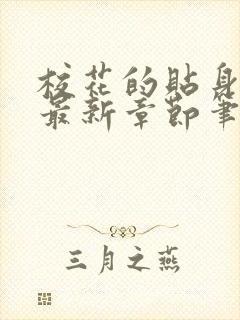 校花的贴身
最新章节笔
三月之燕